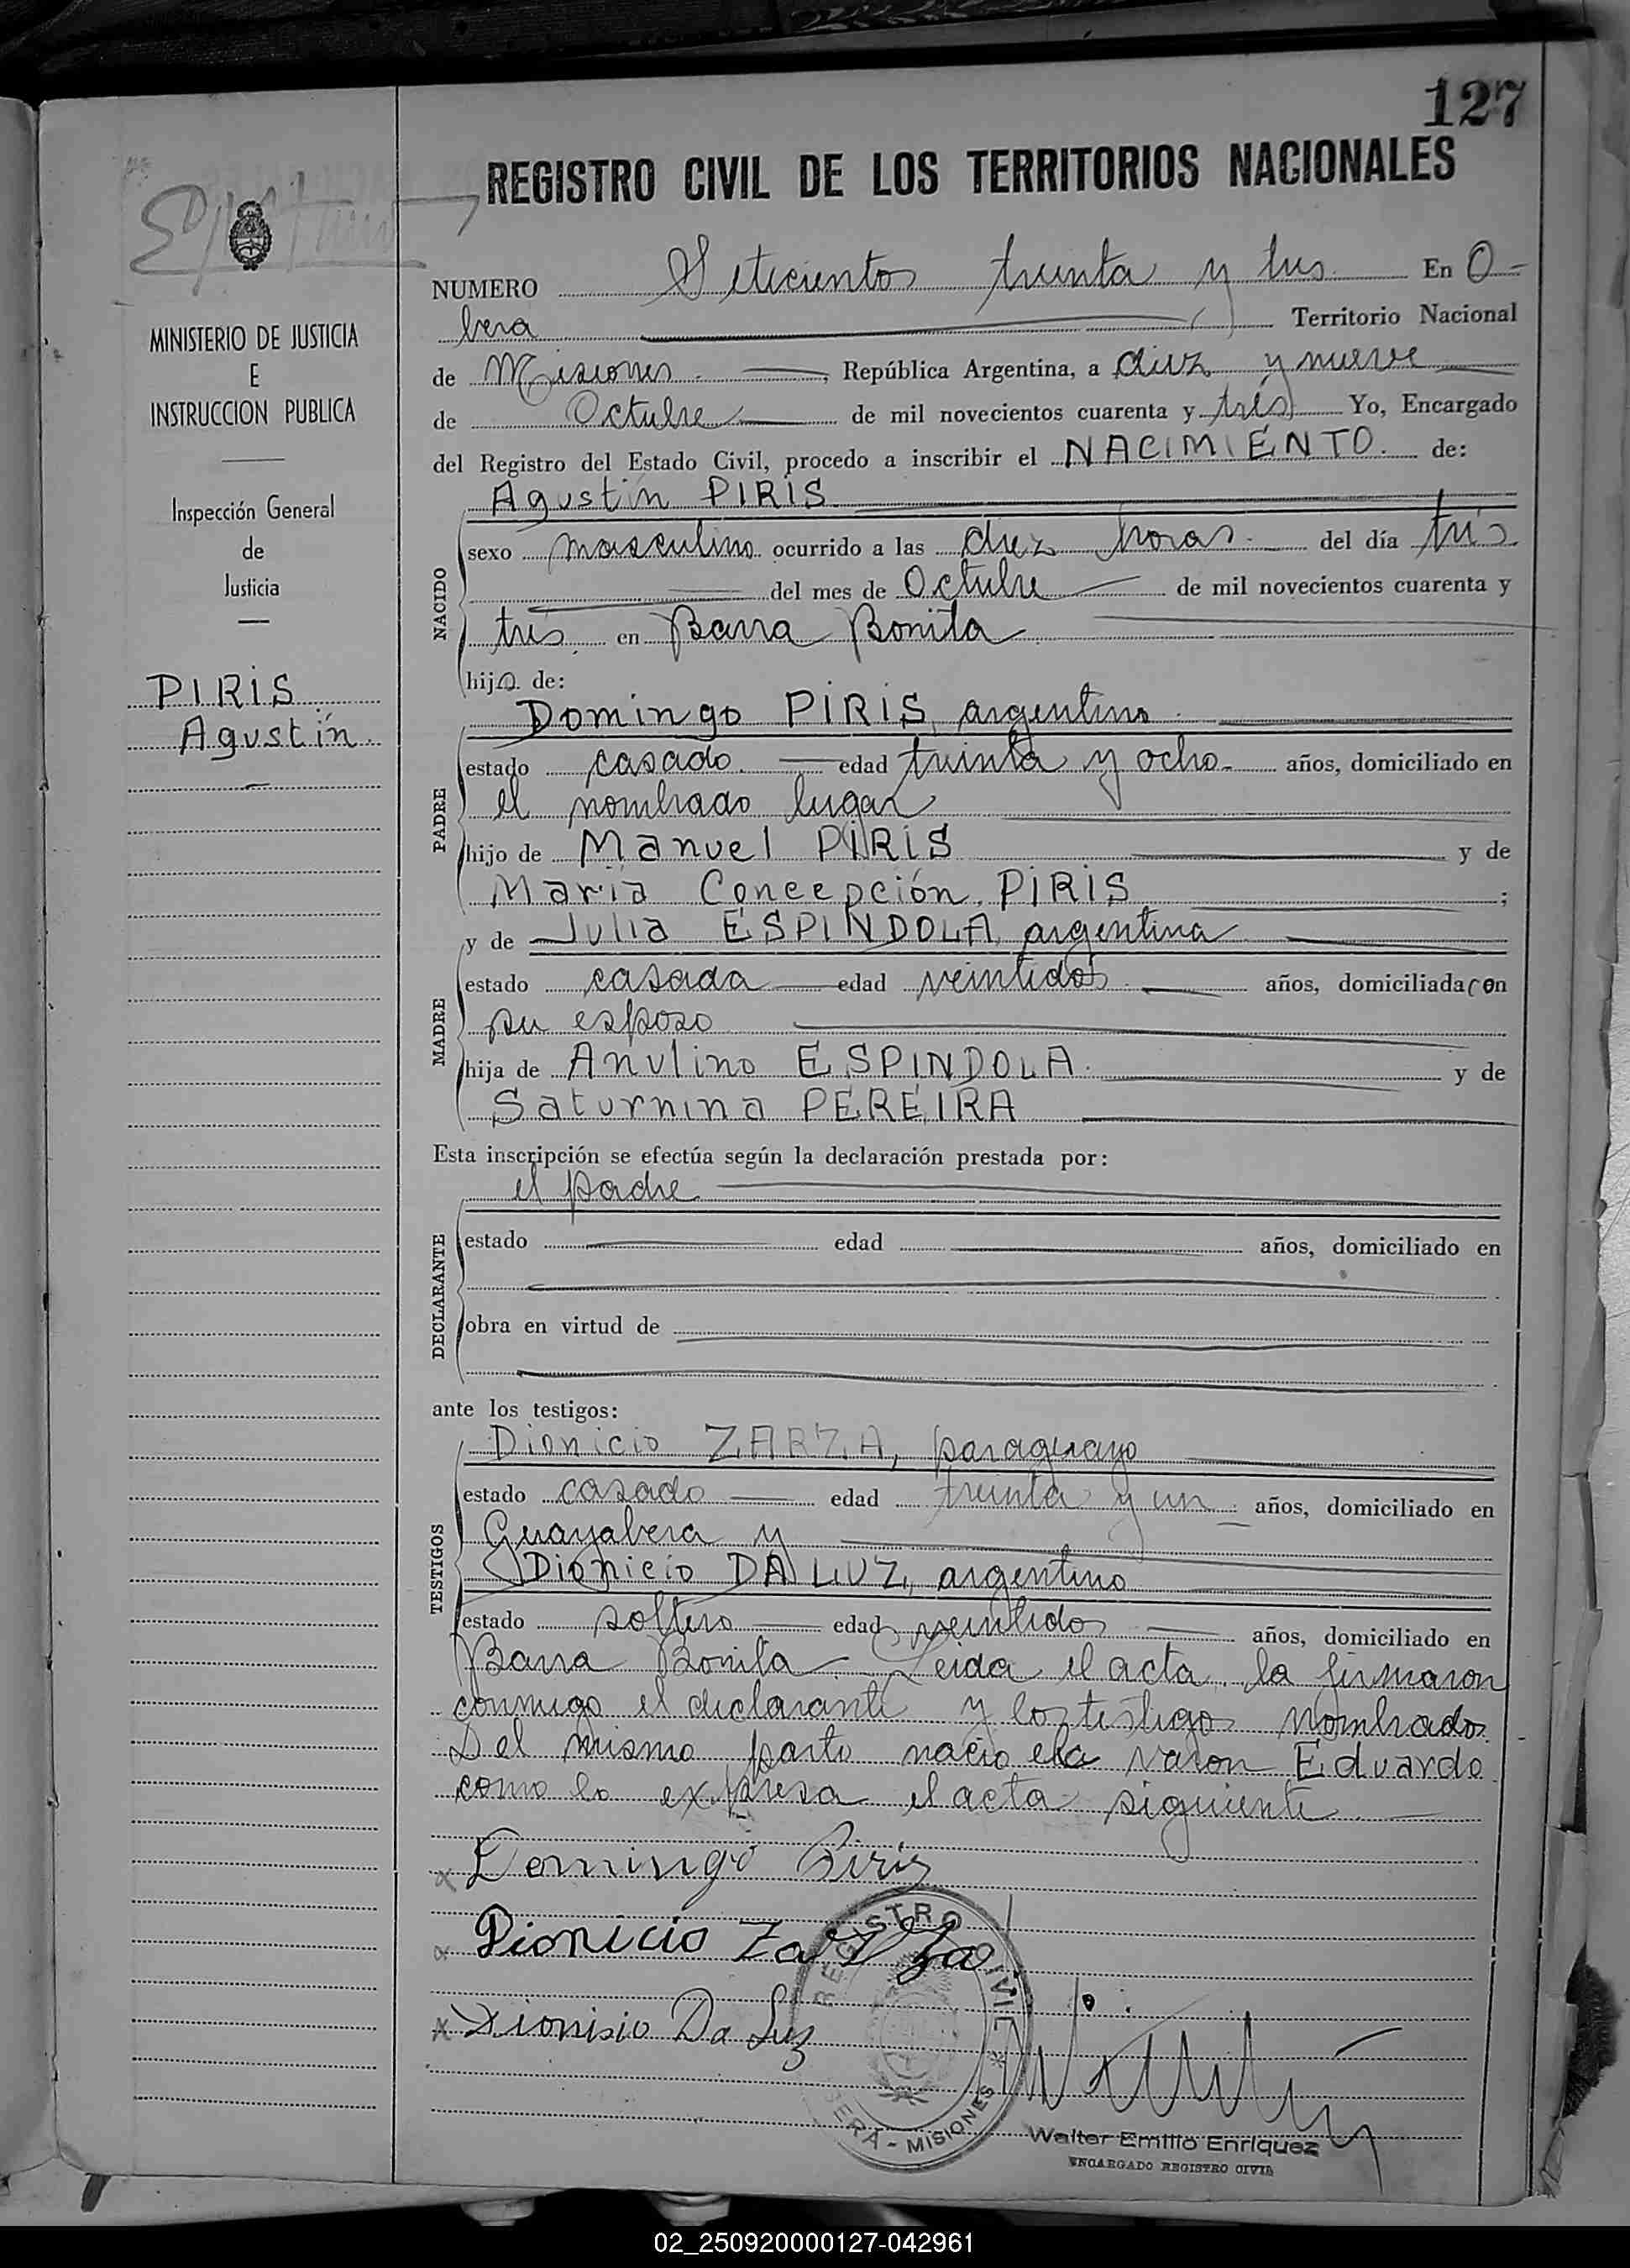 127
REGISTRO CIVIL DE LOS TERRITORIOS NACIONALES
MINISTERIO DE JUSTICIA
E
INSTRUCCION PUBLICA
Inspección General
de
Justicia
PIRIS
Agustín.
NUMERO Seteciento treinta y tres En O-
bera Territorio Nacional
de Misiones, República Argentina, a diez y nueve
de Octubre de mil novecientos cuarenta y tres Yo, Encargado
del Registro del Estado Civil, procedo a inscribir el NACIMIENTO. de:
Agustín PIRIS
NACIDO
sexo masculino ocurrido a las diez horas del día tres
del mes de Octubre de mil novecientos cuarenta y
tres en Barra Bonita
hijo de:
Domingo PIRIS, argentino
PADRE
estado casado. edad treinta y ocho años, domiciliado en
el nombrado lugar
hijo de Manuel PIRIS y de
María Concepción PIRIS ;
y de Julia ESPINDOLA, argentina
MADRE
estado casada edad veintidos años, domiciliada con
su esposo
hija de Anulino ESPINDOLA y de
Saturnina PEREIRA
Esta inscripción se efectúa según la declaración prestada por:
el padre
DECLARANTE
estado edad años, domiciliado en
obra en virtud de
ante los testigos:
TESTIGOS
Dionicio ZARZA, paraguayo
estado casado edad treinta y un años, domiciliado en
Guayabera y
Dionicio DA LUZ, argentino
estado soltero edad veintidos años, domiciliado en
Barra Bonita. Leida el acta, la firmaron
conmigo el declarante y los testigos nombrados
Del mismo parto nacio el varon Eduardo
como lo expresa el acta siguiente
x Domingo Piris
x Dionicio Zarza
x Dionisio Da Luz
REGISTRO CIVIL * OBERA - MISIONES
Walter Emilio Enriquez
ENCARGADO REGISTRO CIVIL
02_250920000127-042961